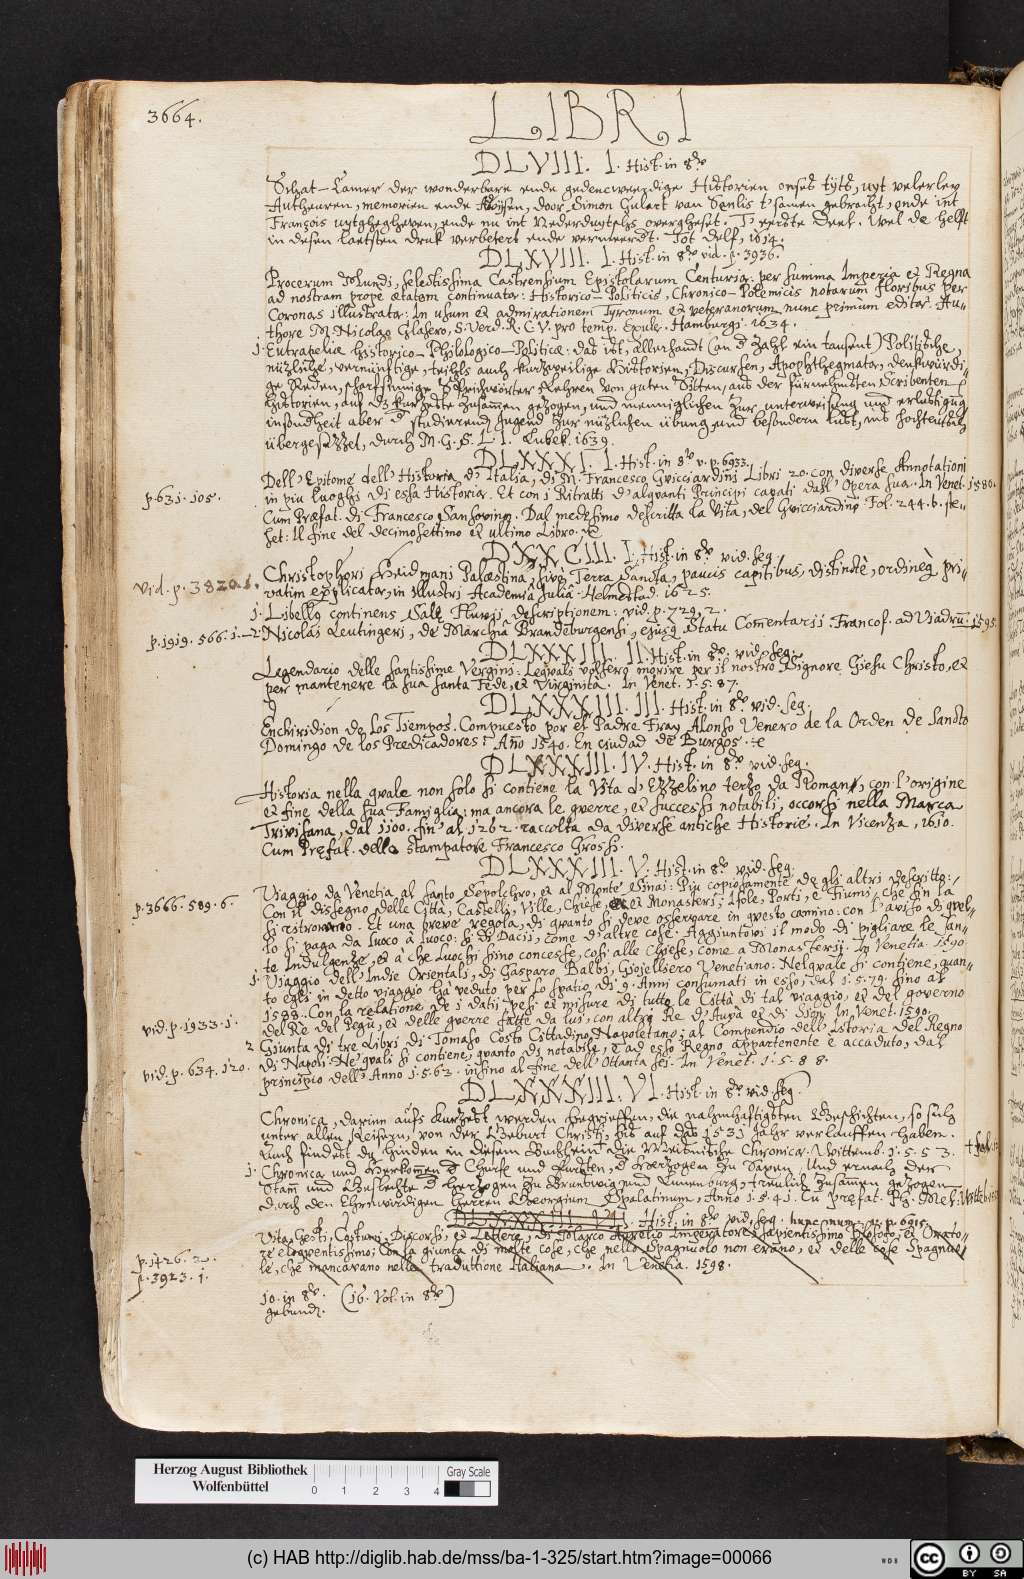 3664.
LIBRI
DLVIII. I. Hist. in 8vo
Schat-Camer der wonderbare ende gedencweerdige Historien onses tijts, uyt velerley
Autheuren, memorien ende door Simon Gulart van Senlis t'samen gebracht, ende int
François uytghegheven, ende nu int Nederduytschs overgheset. T' eerste Deel. Wel de helft
in desen laetsten druk verbetert ende vermeerdt. Tot Delf, 1614.
DLXVIII. I. Hist. in 8vo vid. p. 3936.
Procerum Mundi, selectissima Castrensium Epistolarum Centuria: per summa Imperia et Regna
ad nostram prope ætatem continuata: Historico-Politicis, Chronico-Polemicis notarum floribus per
Coronas illustrata: In usum et admirationem Tyronum et veteranorum nunc primùm edita. Au-
thore M. Nicolao Glasero, S. Verd. R. C. V. pro temp. Exule. Hamburgi. 1634.
1. Eutrapeliæ historico-Philologico-Politicæ: das ist, allerhandt (an d Zahl ein tausent) Politische,
nüzliche, vernünftige, theihls auch kurzweilige Historien, Discursen, Apophthegmata, denkwürdi-
ge Reden, scharfsinnige Sprichwörter Lehren von guten Sitten, aus der fürnehmsten Scribenten
Historien, auf dz kurzeste zusammen gezogen, und menniglichen zur unterweisung und erlustigung
insondheit aber d studierend Jugend zur nüzlichen übung und besondern lust, ins hochteutsch
übergesezzet, durch M. G. S. L I. Lubek. 1639.
DLXXXI. I. Hist. in 8vo v. p. 6933.
Dell' Epitome dell' Historia d' Italia, di M. Francesco Gvicciardini Libri 20. con diverse Annotationi
p. 631. 105.
in piu luoghi di essa Historia. Et con i Ritratti d'alquanti Principi cavati dall' Opera sua. In Venet. 1580.
Cum Præfat. di Francesco Sansovino. Dal medesimo descritta la Vita, del Gvicciardino Fol. 244. b. se-
het: Il fine del decimosettimo et ultimo Libro. &c
DXXCIII. I. Hist. in 8vo vid. seq.
vid. p. 3820.1.
Christophori Heidmani Palæstina, sive Terra Sancta, paucis capitibus, distinctè, ordineq pri-
vatim explicata, in illustri Academia Julia. Helmestad. 1625.
1. Libellq continens Salę Fluvij descriptionem. vid. p. 729. 2.
p. 1919. 566. 1.
2 Nicolai Leutingeri, de Marchia Brandeburgensi, ejusq Statu Comentarij. Francof. ad Viadrum. 1595.
DLXXXIII. II. Hist. in 8vo vid. seq.
Legendario delle santissime Vergini. Lequali volsero morire per il nostro Signore Giesu Christo, et
per mantenere la sua santa Fede, et Virginità. In Venet. 1.5.87.
DLXXXIII. III. Hist. in 8vo vid. seq.
Enchiridion de los Tiempos. Compuesto por el Padre Fray Alonso Venero de la Orden de Sancto
Domingo de los Predicadores. Año 1540. En ciudad de Burgos. &c
DLXXXIII. IV. Hist. in 8vo vid. seq.
Historia nella quale non solo si contiene la Vita d' Ezzelino terzo da Romano, con l'origine
et fine della sua Famiglia; ma ancora le guerre, et successi notabili, occorsi nella Marca
Trivisana, dal 1100. fin' al 1262. raccolta da diverse antiche Historie. In Vicenza, 1610.
Cum Pręfat. dello stampatore Francesco Grossi.
DLXXXIII. V. Hist. in 8vo vid. seq.
p. 3666. 589. 6.
Viaggio da Venetia al santo Sepolchro, et al Monte Sinai: Piu copiosamente de gli altri descritto:
Con il disegno delle Città, Castelli, Ville, Chiese, et Monasteri; Isole, Porti, e Fiumi, che fin la
si ritrovano. Et una breve regola, di quanto si deve osservare in questo camino: con l'aviso di quel-
lo si paga da luoco à luoco: si di Dacii, come d'altre cose. Aggiuntovi il modo di pigliare le San-
te Indulgenze, et a che luochi siino concesse, cosi alle Chiese, come a Monasterij. In Venetia 1590.
1. Viaggio dell' Indie Orientali, di Gasparo Balbi, Gioielliero Venetiano: Nelquale si contiene, quan-
to egli in detto viaggio hà veduto per lo spatio, di 9. Anni consumati in esso, dal 1.5.79. fino al
1588. Con la relatione de i datii, pesi et misure di tutte le Città di tal viaggio, et del governo
vid. p. 1933. 1.
del Re del Pegù, et delle guerre fatte da lui, con altri Re d' Auvà et di Sion. In Venet. 1590.
2 Giunta di tre Libri, di Tomaso Costo Cittadino Napoletano; al Compendio dell' Istoria del Regno
vid. p. 634. 120.
di Napoli. Ne quali si contiene, quanto di notabile, e ad esso Regno appartenente è accaduto, dal
principio dell' Anno 1.5.63. insino al fine dell' Ottanta sei. In Venet. 1.5.88.
DLXXXIII. VI. Hist. in 8vo vid. seq.
Chronica, darinn aufs kurzest werden begrieffen, die nahmhaftigsten Geschichten, so sich
unter allen Keisern, von der Geburt Christi, bis auf das 1531 Jahr verlauffen haben.
Auch findest du hinden in diesem Buchlein die Meitnische Chronica. Wittemb. 1.5.53.
1. Chronica und Herkomen d Churfe und Fursten, d Herzogen zu Saxen. Und ernach der
Stam und Geslechte d herzogen zu Brunswig und Lunenburg, treulich zusamen gezogen
durch den Ehrnwirdigen Herren Georgium Spalatinum, Anno 1.5.41. Cu pręfat. Ph. Mel.
DLXXXIII. VII. Hist. in 8vo vid. seq. hunc num. p. 6915.
Vita, Gesti, Costumi, Discorsi, et Lettere, di Marco Aurelio Imperatore sapientissimo Filosofo, et Orato-
p. 1426. 3.
re eloquentissimo; Con la giunta di molte cose, che nello Spagnuolo non erano, et delle cose Spagnuo-
p. 3923. 1.
le, che mancavano nella traduttione Italiana. In Venetia. 1598.
10. in 8vo. (16. Vol. in 8vo)
gebund.
Herzog August Bibliothek
Wolfenbüttel
0 1 2 3 4
Gray Scale
(c) HAB http://diglib.hab.de/mss/ba-1-325/start.htm?image=00066
WDB
cc BY SA